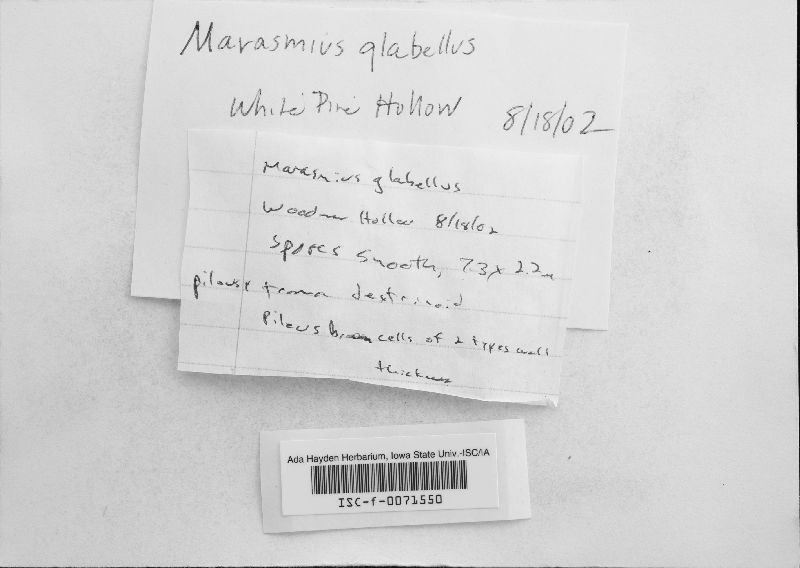 Marasmius glabellus
White Pine Hollow 8/18/02
Marasmius glabellus
Woodman Hollow 8/18/02
Spores smooth, 7.3 x 2.2
pileus trama dextrinoid
Pileus cells of 2 types wall
thickness
Ada Hayden Herbarium, Iowa State Univ.-ISC/IA
ISC-f-0071550